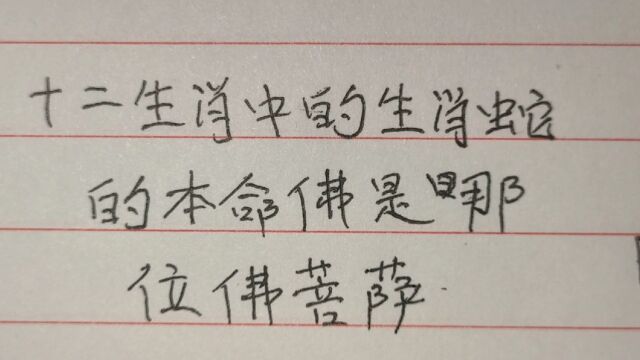 十二生肖中的生肖蛇
的本命佛是哪
位佛菩萨